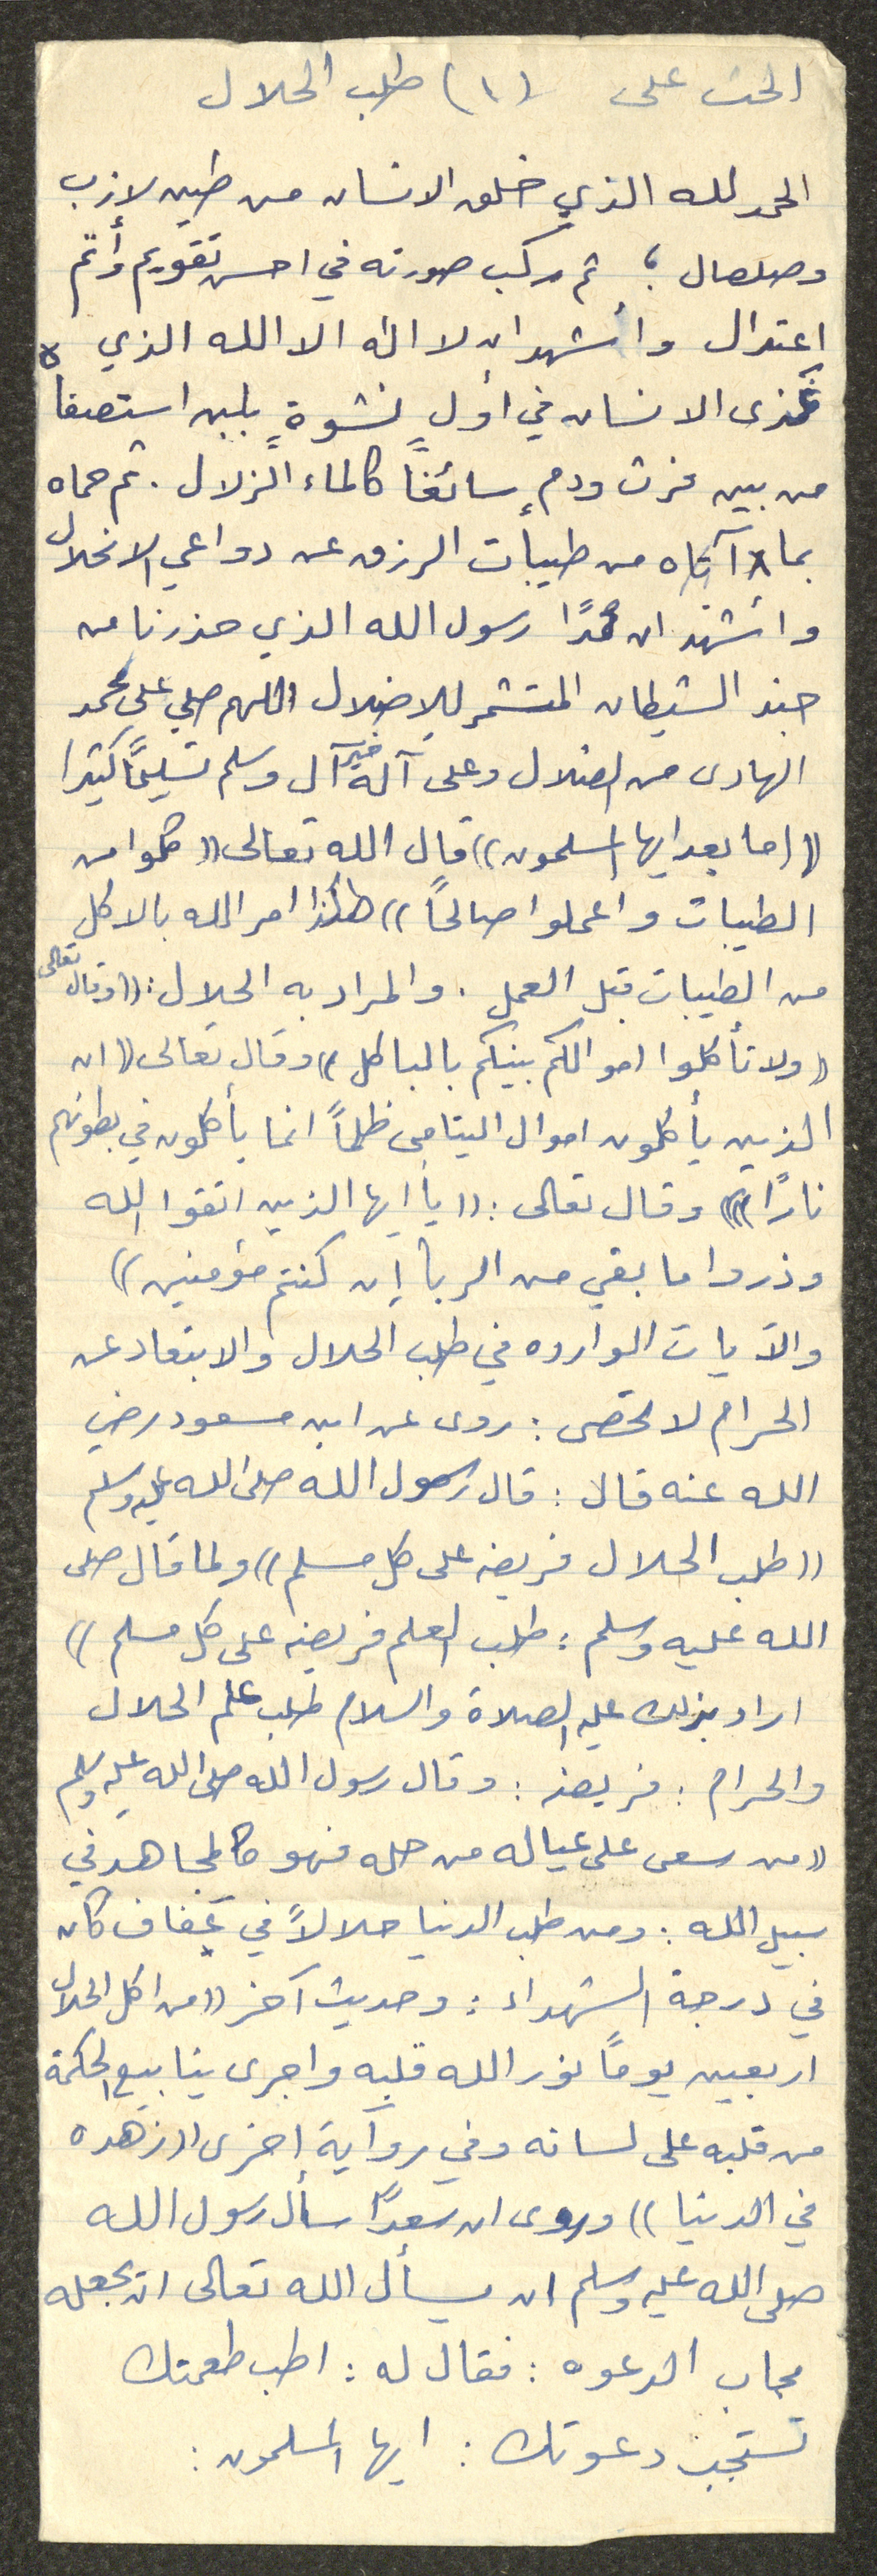 الحث على (١) طلب الحلال
الحمد لله الذي خلق الانسان من طين لازب
وصلصال ؛ ثم ركب صورته في احسن تقويم وأتم
اعتدال وأشهد ان لا اله الا الله الذي
غذى الانسان في أول نشوةٍ بلبن استصفاه
من بين فرث ودمٍ سائغاً كالماء الزلال . ثم حماه
بما آتاه من طيبات الرزق عن دواعي الانحلال
وأشهد ان محمدًا رسول الله الذي حذرنا من
جند الشيطان المتشمر للإضلال اللهم صلي على محمد
الهادى من الضلال وعلى آله خير آل وسلم تسليمًا كثيرا
((اما بعد ايها المسلمون)) قال الله تعالى ((كلوا من
الطيبات واعملوا صالحاً)) هكذا امر الله بالاكل
من الطيبات قبل العمل . والمراد به الحلال : ((وقال تعالى
((ولا تأكلوا اموالكم بينكم بالباطل)) وقال تعالى ((ان
الذين يأكلون اموال اليتامى ظلماً انما يأكلون في بطونهم
نارًا)) وقال تعالى : ((يا ايها الذين اتقوا الله
وذروا ما بقي من الربا إن كنتم مؤمنين))
والآيات الوارده في طلب الحلال والابتعاد عن
الحرام لا تحصى : روى عن ابن مسعود رضي
الله عنه قال : قال رسول الله صلى الله عليه وسلم
((طلب الحلال فريضه على كل مسلم)) ولما قال صلى
الله عليه وسلم : طلب العلم فريضه على كل مسلم))
اراد بذلك عليه الصلاة والسلام طلب علم الحلال
والحرام : فريضه : وقال رسول الله صلى الله عليه وسلم
((من سعى على عياله من حله فهو كالمجاهد في
سبيل الله : ومن طلب الدنيا حلالاً في عفاف كان
في درجة الشهداء : وحديث آخر ((من اكل الحلال
اربعين يوماً نور الله قلبه واجرى ينابيع الحكمة
من قلبه على لسانه وفي رواية اخرى ((زهده
في الدنيا)) وروى ان سعدًا سأل رسول الله
صلى الله عليه وسلم ان يسأل الله تعالى ان يجعله
مجاب الدعوه : فقال له : اطب طعمتك
تستجب دعوتك : ايها المسلمون :